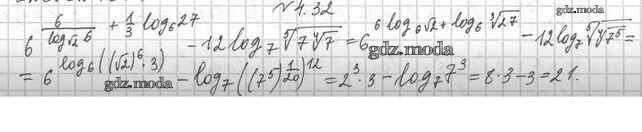 №4.32
6^{6/log_{√2} 6 + 1/3 log_6 27} - 12 log_7 ⁵√(7 ⁴√7) = 6^{6 log_6 √2 + log_6 ³√27} - 12 log_7 ⁵√(⁴√7⁵) =
gdz.moda gdz.moda
= 6^{log_6((√2)^6 · 3)} - log_7((7^5)^{1/20})^{12} = 2^3 · 3 - log_7 7^3 = 8 · 3 - 3 = 21.
gdz.moda gdz.moda